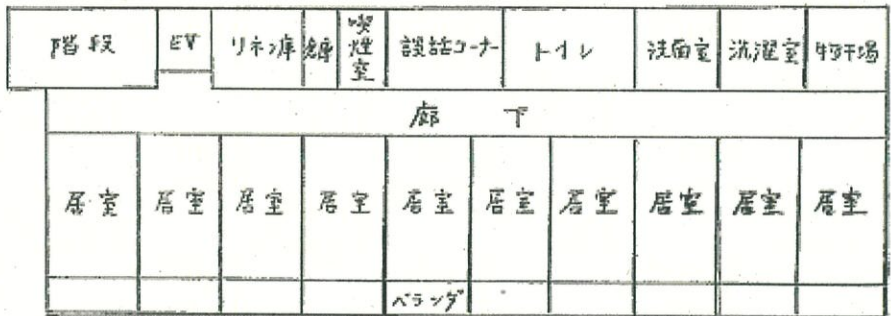 階段
EV
リネン庫
倉庫
喫煙室
談話コーナー
トイレ
洗面室
洗濯室
物干場
廊下
居室
居室
居室
居室
居室
居室
居室
居室
居室
居室
ベランダ